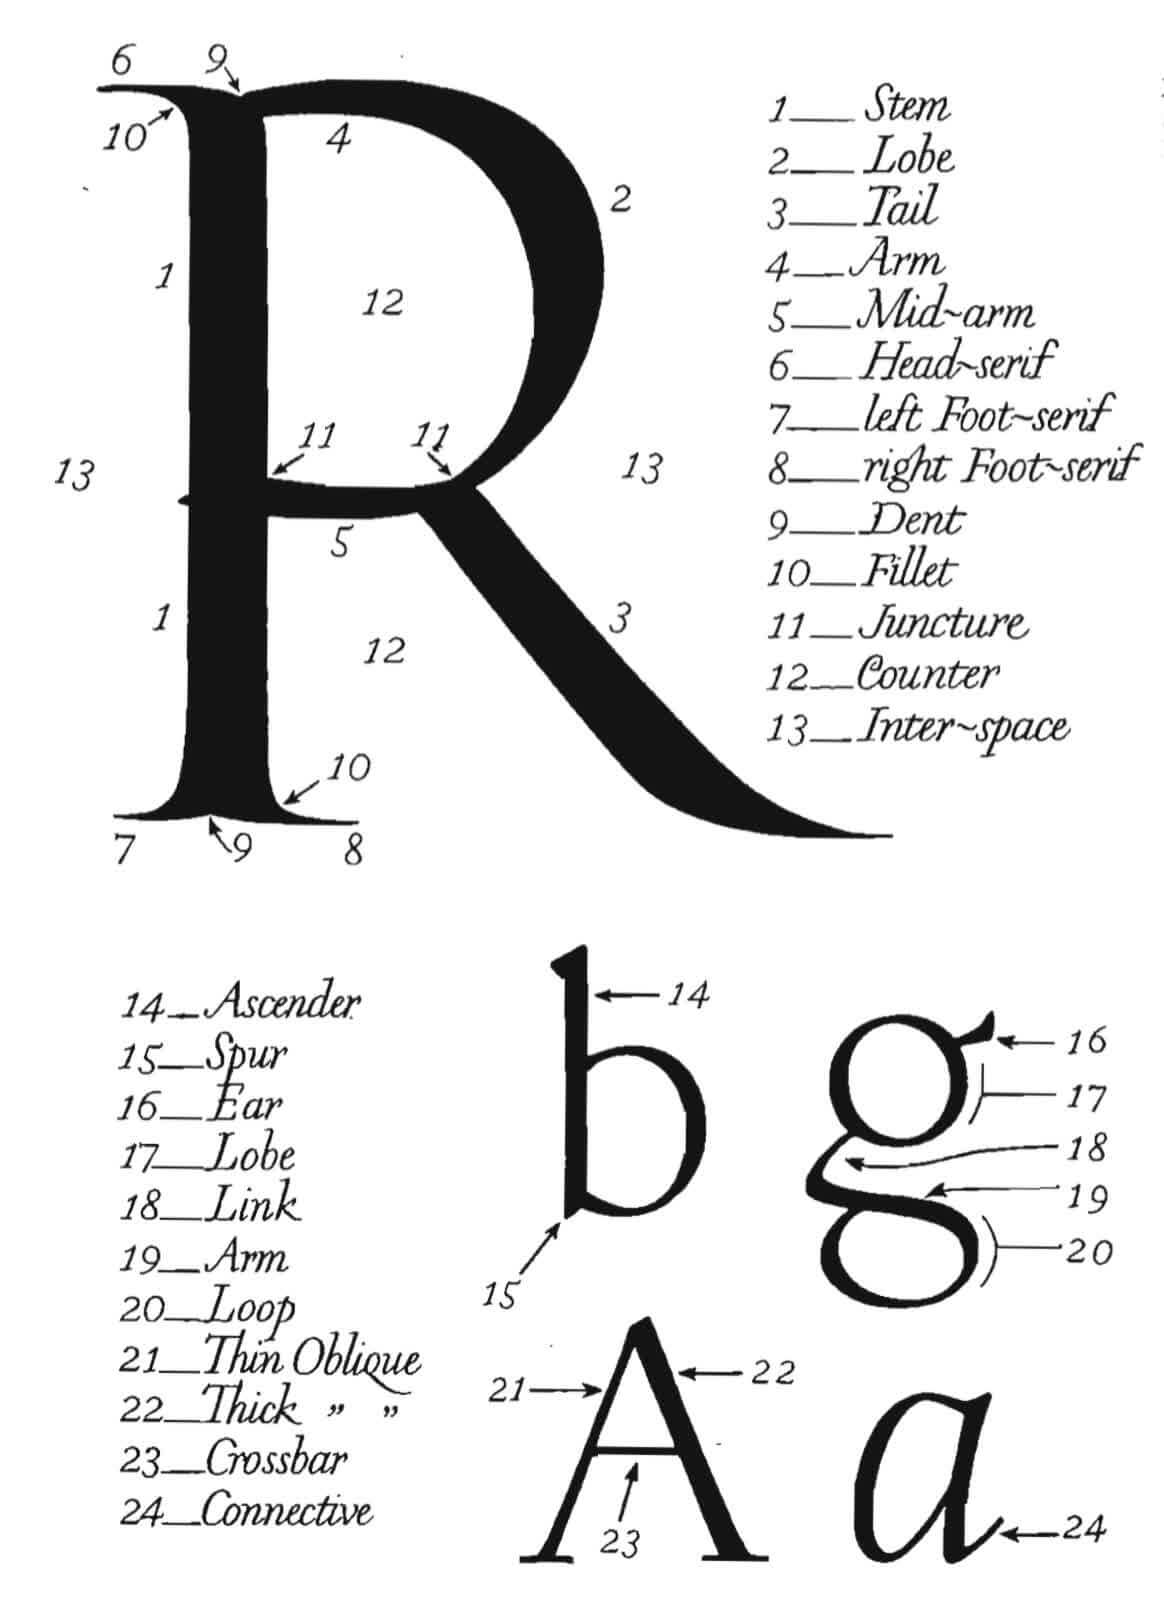 6 9
10
4
2
1
12
11 11
13
13
5
1
12
3
10
7 9 8
1 Stem
2 Lobe
3 Tail
4 Arm
5 Mid~arm
6 Head~serif
7 left Foot~serif
8 right Foot~serif
9 Dent
10 Fillet
11 Juncture
12 Counter
13 Inter~space
R
14 Ascender
15 Spur
16 Ear
17 Lobe
18 Link
19 Arm
20 Loop
21 Thin Oblique
22 Thick " "
23 Crossbar
24 Connective
b
14
15
g
16
17
18
19
20
A
21
22
23
a
24